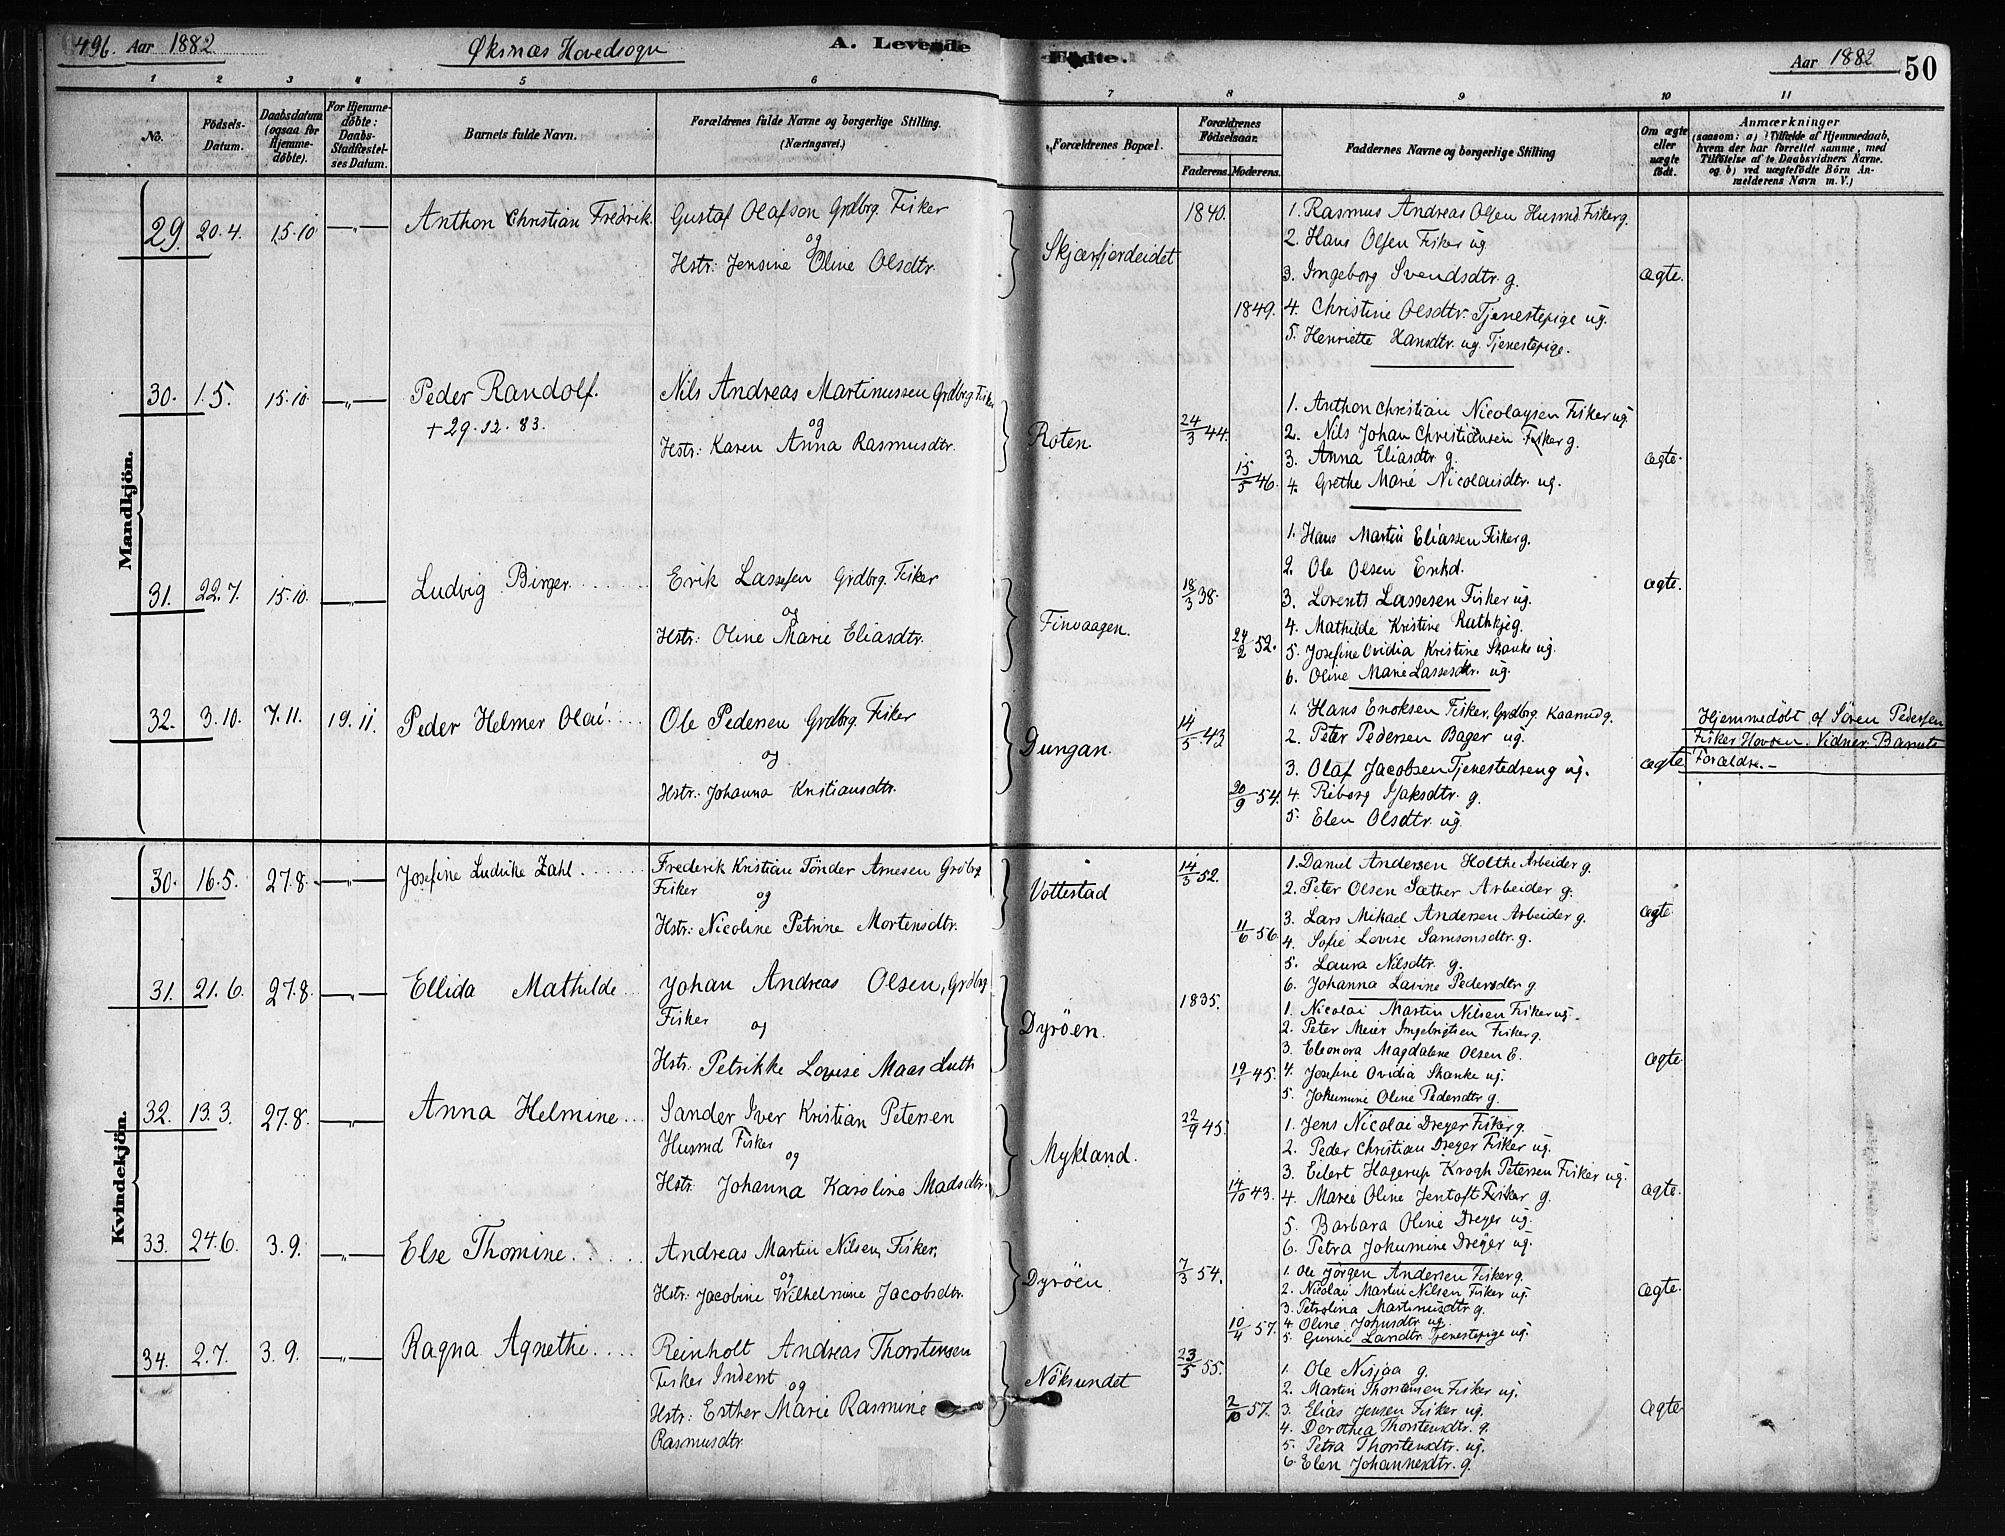 496. Aar 1882 Øksnæs Hovedsogn A. Levende Fødte. Aar 1882 50
1 2 3 4 5 6 7 8 9 10 11
No.
Födsels-Datum.
Daabsdatum (ogsaa for Hjemme-döbte).
For Hjemme-döbte: Daabs-Stadfæstel-ses Datum.
Barnets fulde Navn.
Forældrenes fulde Navne og borgerlige Stilling.
(Næringsvei.)
Forældrenes Bopæl.
Forældrenes Födselsaar.
Faderens. Moderens.
Faddernes Navne og borgerlige Stilling
Om ægte eller uægte födt.
Anmærkninger
(saasom: a) i Tilfælde af Hjemmedaab,
hvem der har forrettet samme, med
Tilföielse af to Daabsvidners Navne.
og b) ved uægtefödte Börn An-
melderens Navn m. V.)
Mandkjön.
29. 20.4. 15.10 —„— Anthon Christian Fredrik Gustaf Olafson Grdbrg. Fisker
og
Hstr: Jensine Oline Olsdtr.
Skjærfjordeidet
1840.
1849.
1. Rasmus Andreas Olsen Husmd. Fisker g.
2. Hans Olsen Fisker ug.
3. Ingeborg Svendsdtr. g.
4. Christine Olsdtr. Tjenestepige ug.
5. Henriette Hansdtr. ug. Tjenestepige.
ægte.
30. 1.5. 15.10 —„— Peder Randolf.
+ 29.12.83.
Nils Andreas Martinussen Grdbrg Fisker
og
Hstr: Karen Anna Rasmusdtr.
Roten
24/3 44.
15/5 46.
1. Anthon Christian Nicolaysen Fisker ug.
2. Nils Johan Christiansen Fisker g.
3. Anna Eliasdtr. g.
4. Grethe Marie Nicolaisdtr. ug.
ægte.
31. 22.7. 15.10 —„— Ludvig Birger. Erik Lassesen Grdbrg. Fisker
og
Hstr: Oline Marie Eliasdtr.
Finvaagen.
18/3 38.
24/2 52.
1. Hans Martin Eliassen Fisker g.
2. Ole Olsen Enkd.
3. Lorents Lassesen Fisker ug.
4. Mathilde Kristine Rathkje g.
5. Josefine Ovidia Kristine Skanke ug.
6. Oline Marie Lassesdtr. ug.
ægte.
32. 3.10. 7.11. 19.11. Peder Helmer Olai Ole Pedersen Grdbrg. Fisker
og
Hstr: Johanna Kristiansdtr.
Dungan.
14/5 43
20/9 54.
1. Hans Enoksen Fisker, Grdbrg. Kaarsund g.
2. Peter Pedersen Bager ug.
3. Olaf Jacobsen Tjenestedreng ug.
4. Riborg Isaksdtr. g.
5. Elen Olsdtr. ug.
ægte
Hjemmedöbt af Sören Pedersen
Fisker Hovden. Vidner. Barnets
Forældre. —
Kvindekjön.
30. 16.5. 27.8. —„— Josefine Ludrike Zahl Frederik Kristian Tönder Arnesen Grdbrg
Fisker
og
Hstr: Nicoline Petrine Mortensdtr.
Vottestad
14/3 52.
11/6 56.
1. Daniel Andersen Holthe Arbeider g.
2. Peter Olsen Sæther Arbeider g.
3. Lars Mikael Andersen Arbeider g.
4. Sofie Lovise Samsonsdtr. g.
5. Laura Nilsdtr. g.
6. Johanna Lavine Pedersdtr g
ægte
31. 21.6. 27.8. —„— Ellida Mathilde Johan Andreas Olsen, Grdbrg
Fisker
og
Hstr: Petrikke Lovise Maas Luth
Dyröen.
1835.
19/1 45.
1. Nicolai Martin Nilsen Fisker ug.
2. Peter Meier Ingebrigtsen Fisker g.
3. Eleonora Magdalene Olsen E.
4. Josefine Ovidia Skanke ug.
5. Johumine Oline Pedersdtr g.
ægte.
32. 13.3. 27.8. —„— Anna Helmine Sander Iver Kristian Petersen
Husmd Fisker
og
Hstr: Johanna Karoline Madsdtr.
Mykland.
22/9 45.
14/10 43.
1. Jens Nicolai Dreyer Fisker g.
2. Peder Christian Dreyer Fisker ug.
3. Eilert Hagerup Krogh Petersen Fisker ug.
4. Marie Oline Jentoft Fisker g.
5. Barbara Oline Dreyer ug.
6. Petra Johumine Dreyer ug.
ægte.
33. 24.6. 3.9. —„— Else Thomine. Andreas Martin Nilsen, Fisker,
og
Hstr: Jacobine Wilhelmine Jacobsdtr.
Dyröen
7/3 54.
10/4 57.
1. Ole Jörgen Andersen Fisker g.
2. Nicolai Martin Nilsen Fisker ug.
3. Petrolina Martinusdtr. g.
4. Oline Johnsdtr. ug.
5. Gurine Larsdtr. Tjenestepige ug.
ægte.
34. 2.7. 3.9. —„— Ragna Agnethe Reinholt Andreas Thorstensen
Fisker Inderst
og
Hstr: Esther Marie Rasmine
Rasmusdtr.
Nöksundet
23/5 55.
2/10 57.
1. Ole Nisjaa g.
2. Martin Thorstensen Fisker ug.
3. Elias Jensen Fisker ug.
4. Dorothea Thorstensdtr. g.
5. Petra Thorstensdtr. ug.
6. Elen Johannesdtr. g.
ægte.